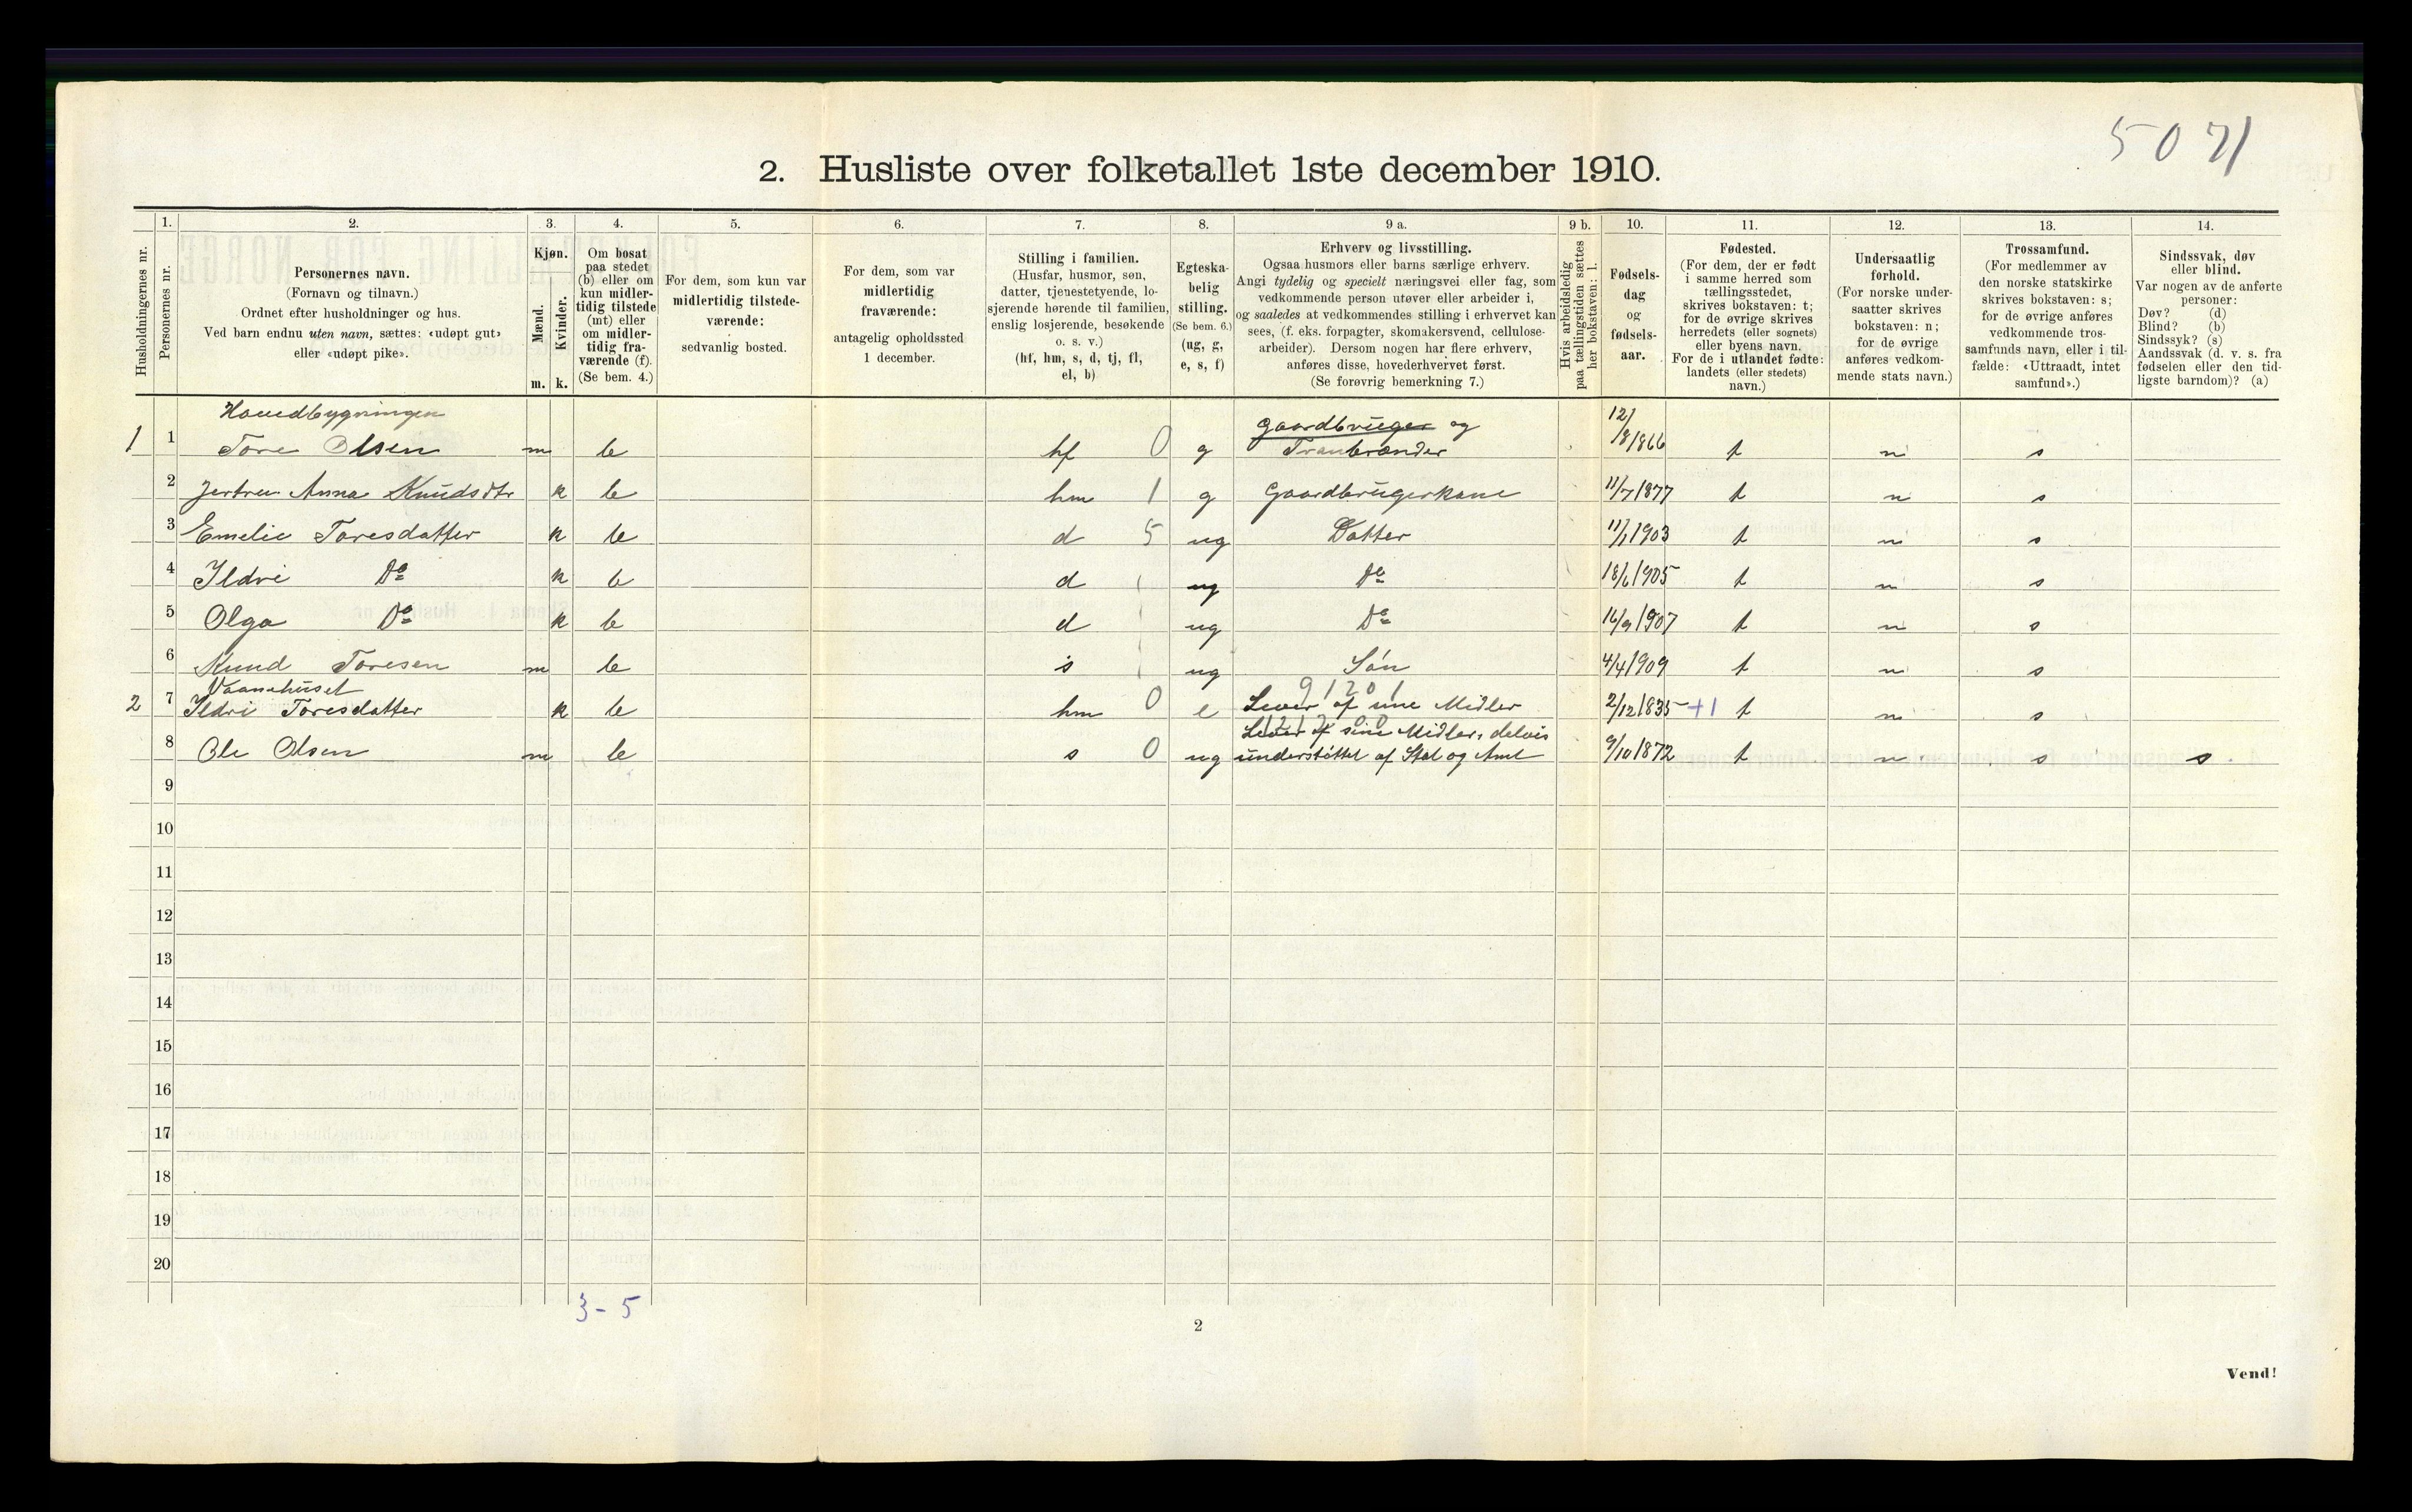 5071
2. Husliste over folketallet 1ste december 1910.
Husholdningernes nr.
1.
Personernes nr.
2.
Personernes navn.
(Fornavn og tilnavn.)
Ordnet efter husholdninger og hus.
Ved barn endnu uten navn, sættes: «udøpt gut»
eller «udøpt pike».
3.
Kjøn.
Mænd.
Kvinder.
m. k.
4.
Om bosat
paa stedet
(b) eller om
kun midler-
tidig tilstede
(mt) eller
om midler-
tidig fra-
værende (f).
(Se bem. 4.)
5.
For dem, som kun var
midlertidig tilstede-
værende:
sedvanlig bosted.
6.
For dem, som var
midlertidig
fraværende:
antagelig opholdssted
1 december.
7.
Stilling i familien.
(Husfar, husmor, søn,
datter, tjenestetyende, lo-
sjerende hørende til familien,
enslig losjerende, besøkende
o. s. v.)
(hf, hm, s, d, tj, fl,
el, b)
8.
Egteska-
belig
stilling.
(Se bem. 6.)
(ug, g,
e, s, f)
9 a.
Erhverv og livsstilling.
Ogsaa husmors eller barns særlige erhverv.
Angi tydelig og specielt næringsvei eller fag, som
vedkommende person utøver eller arbeider i,
og saaledes at vedkommendes stilling i erhvervet kan
sees, (f. eks. forpagter, skomakersvend, cellulose-
arbeider). Dersom nogen har flere erhverv,
anføres disse, hovederhvervet først.
(Se forøvrig bemerkning 7.)
9 b.
Hvis arbeidsledig
paa tællingstiden sættes
her bokstaven: l.
10.
Fødsels-
dag
og
fødsels-
aar.
11.
Fødested.
(For dem, der er født
i samme herred som
tællingsstedet,
skrives bokstaven: t;
for de øvrige skrives
herredets (eller sognets)
eller byens navn.
For de i utlandet fødte:
landets (eller stedets)
navn.)
12.
Undersaatlig
forhold.
(For norske under-
saatter skrives
bokstaven: n;
for de øvrige
anføres vedkom-
mende stats navn.)
13.
Trossamfund.
(For medlemmer av
den norske statskirke
skrives bokstaven: s;
for de øvrige anføres
vedkommende tros-
samfunds navn, eller i til-
fælde: «Uttraadt, intet
samfund».)
14.
Sindssvak, døv
eller blind.
Var nogen av de anførte
personer:
Døv? (d)
Blind? (b)
Sindssyk? (s)
Aandssvak (d. v. s. fra
fødselen eller den tid-
ligste barndom)? (a)
Hovedbygningen
1 1 Tore Olsen m b hf 0 g Gaardbruger og Tranbrænder 12/8 1866 t n s
2 Jertru Anna Knudsdtr k b hm 1 g Gaardbrugerkone 11/7 1877 t n s
3 Emelie Toresdatter k b d 5 ug Datter 11/1 1903 t n s
4 Ildri Do k b d ug Do 18/6 1905 t n s
5 Olga Do k b d ug Do 16/9 1907 t n s
6 Knud Toresen m b s ug Søn 4/4 1909 t n s
Vaanehuset 9 1201
2 7 Ildri Toresdatter k b hm 0 e Lever af sine Midler 2/12 1835 +1 t n s
8 Ole Olsen m b s 0 ug Lever af sine Midler, delvis understøttet af Stat og Amt 9/10 1872 t n s s
9
10
11
12
13
14
15
16
17
18
19
20
3 - 5
2
Vend!